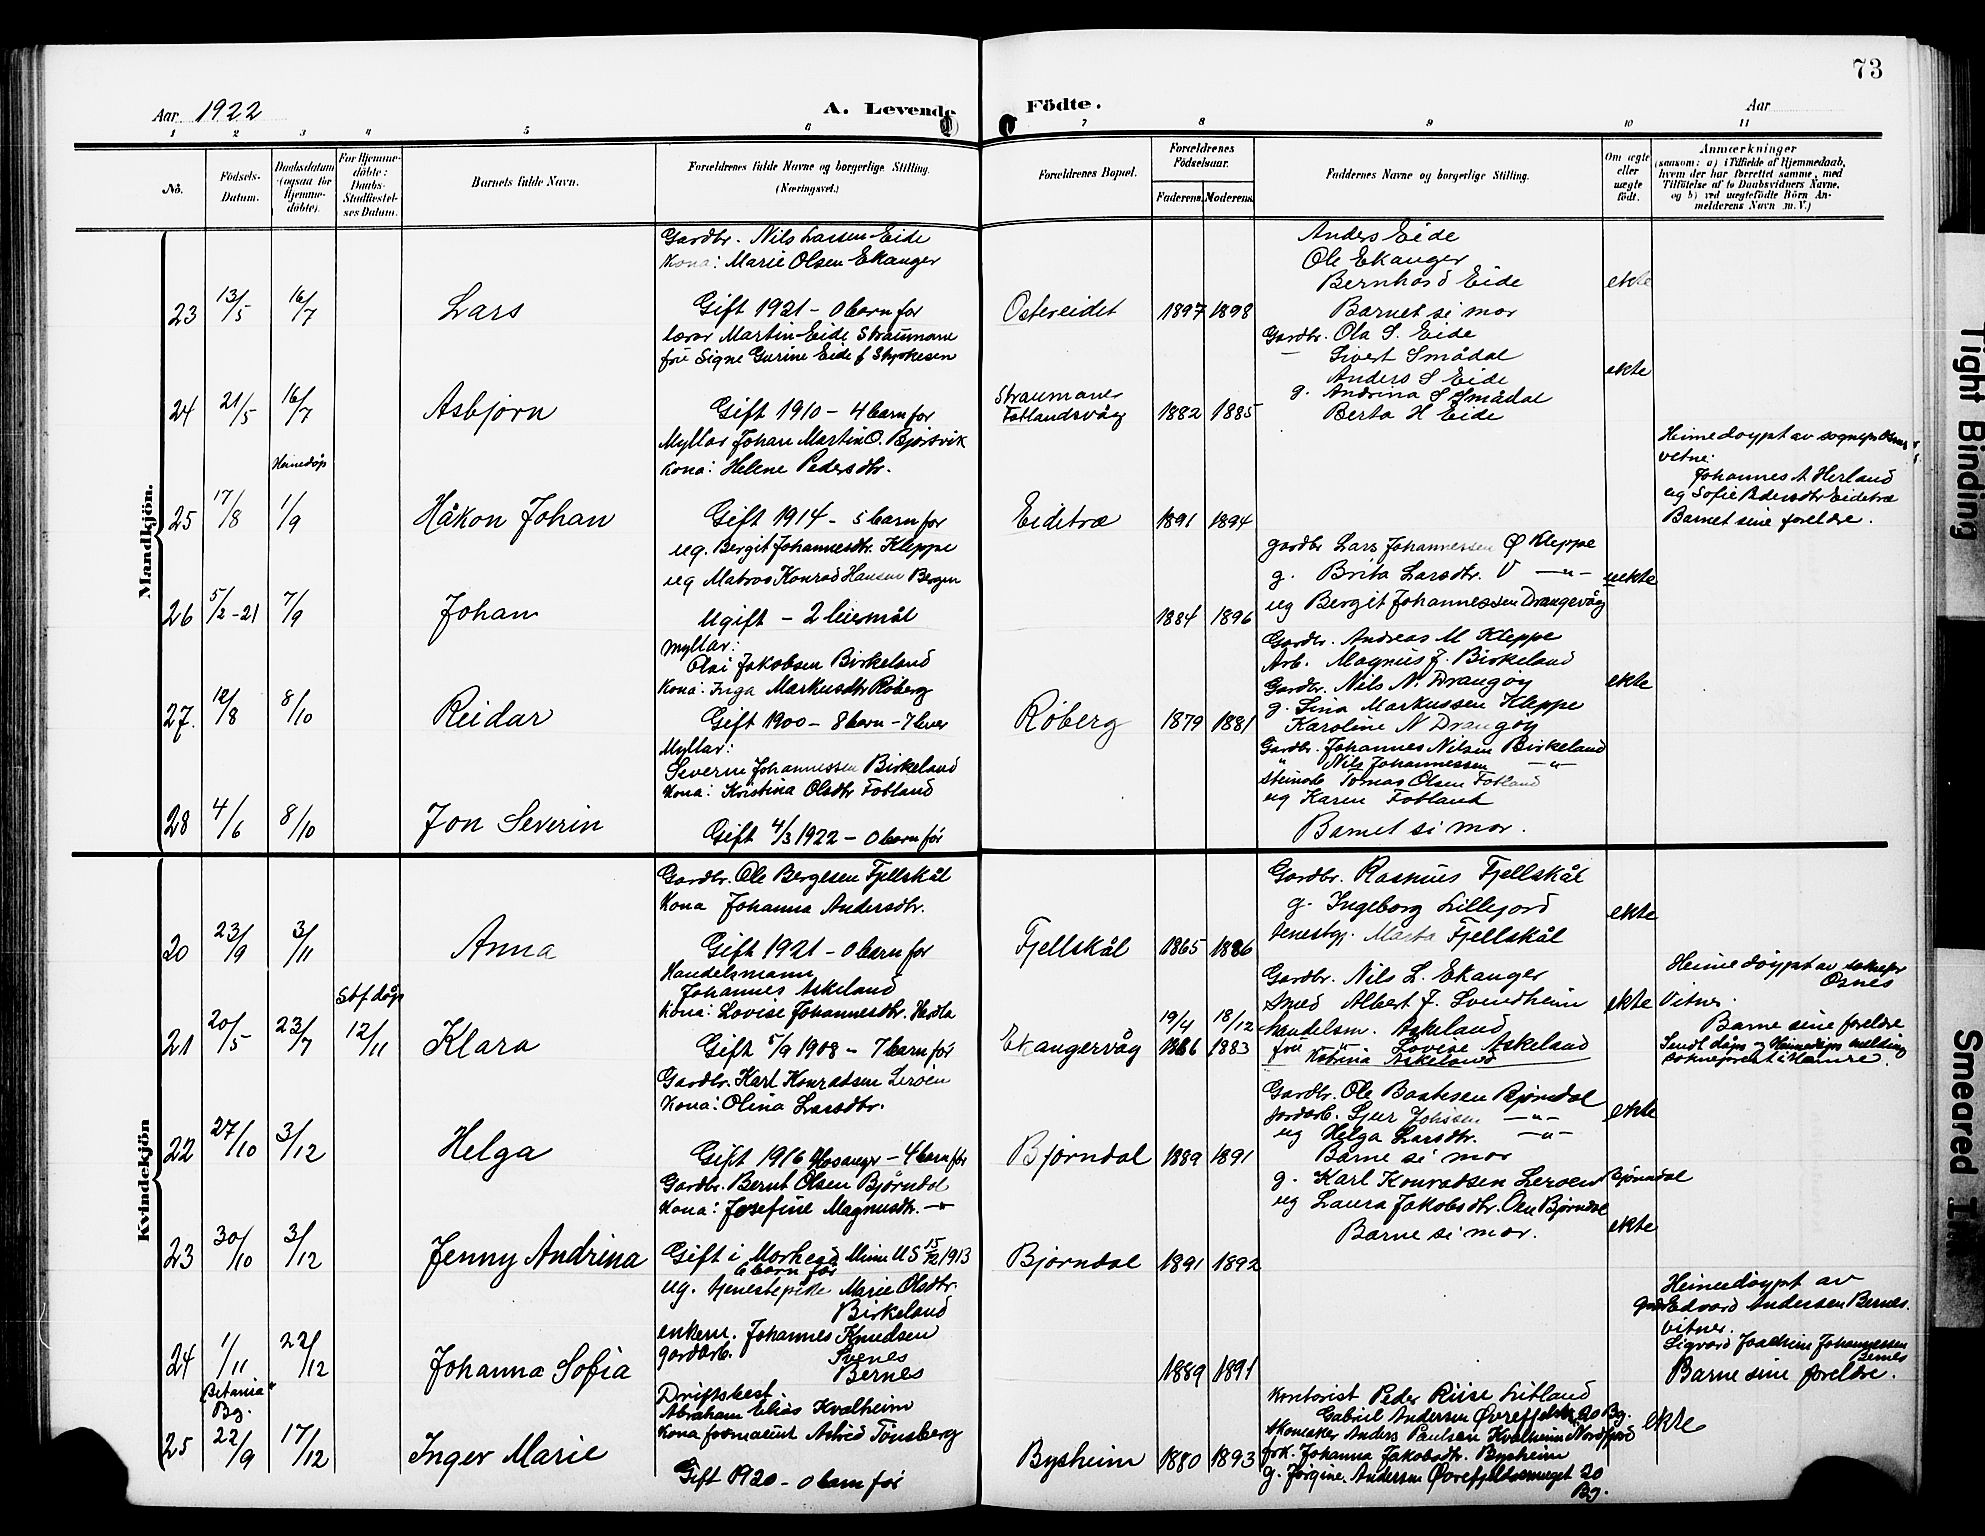 73
Aar 1922
A. Levende Födte.
Aar
1 2 3 4 5 6 7 8 9 10 11
No.
Födsels-
Datum.
Daabsdatum
(ogsaa for
Hjemme-
döbte).
For Hjemme-
döbte:
Daabs-
Stadfæstel-
ses Datum.
Barnets fulde Navn.
Forældrenes fulde Navne og borgerlige Stilling.
(Næringsvei.)
Forældrenes Bopæl.
Forældrenes
Födselsaar.
Faderens. Moderens.
Faddernes Navne og borgerlige Stilling.
Om ægte
eller
uægte
født.
Anmærkninger
(saasom: a) i Tilfælde af Hjemmedaab,
hvem der har forrettet samme, med
Tilföielse af to Daabsvidners Navne,
og b) ved uægtefödte Börn An-
melderens Navn m. V.)
Mandkjön.
23 13/5 16/7 Lars
Gardbr. Nils Larsen Eide
Kona: Marie Olsen Ekanger
Gift 1921 - 0 barn før
Ostereidet 1897 1898
Anders Eide
Ole Ekanger
Bernhard Eide
Barnet si mor
ekte
24 21/5 16/7 Asbjørn
lærar Martin Eide Straumane
fru Signe Gurine Eide f Styrkesen
Gift 1910 - 4 barn før
Straumane
Fotlandsvåg 1882 1885
Gardbr. Ola S. Eide
— Sivert Smådal
Anders S Eide
g. Andrina S Smådal
Berta H Eide
ekte
25 17/8 Heimedøp 1/9 Håkon Johan
Myllar Johan Martin O. Bjørsvik
Kona: Helene Pedersdtr.
Gift 1914 - 5 barn før
Eidetræ 1891 1894
Heimedøypt av sognepr Osnes
vitne:
Johannes A Herland
ug Sofie Pedersdtr Eidetræ
Barnet sine foreldre.
26 5/2-21 7/9 Johan
ug. Bergit Johannesdtr. Kleppe
ug Matros Konrad Hansen Bergen
Ugift - 2 leiermål
1884 1896
gardbr Lars Johannessen Ø Kleppe
g. Brita Larsdtr. V —"—
ug Bergit Johannessen Drangevåg
Gardbr. Andreas M Kleppe
uekte
27. 12/8 8/10 Reidar
Myllar:
Olai Jakobsen Birkeland
Kona: Inga Markusdtr Røberg
Gift 1900 - 8 barn - 7 lever
Røberg 1879 1881
Arb. Magnus J. Birkeland
Gardbr. Nils N. Drangøy
g. Sina Markussen Kleppe
Karoline N Drangøy
ekte
28 4/6 8/10 Jon Severin
Myllar:
Severin Johannessen Birkeland
Kona: Kristina Olsdtr Fotland
Gift 4/3 1922 - 0 barn før
Gardbr. Johannes Nilsen Birkeland
" Nils Johannessen —"—
Tomas Olsen Fotland
ug Karen Fotland
Barnet si mor.
Kvindekjön
20 23/9 3/11 Anna
Gardbr. Ole Bergesen Fjellskål
Kona Johanna Andersdtr.
Gift 1921 - 0 barn før
Fjellskål 1865 1886
Gardbr. Rasmus Fjellskål
g. Ingeborg Lillejord
tenestgj. Marta Fjellskål
ekte
21 20/5 23/7 Stf døp 12/11 Klara
Handelsmann
Johannes Askeland
Kona: Lovise Johannesdtr. Hodla
Gift 5/9 1908 - 7 barn før
Ekangervåg 19/4 1886 18/12 1883
Gardbr. Nils L. Ekanger
Smed Albert J. Svendheim
Handelsm. Askeland
fru " Lovise Askeland
" Katrina Askeland
ekte
Heimedøypt av soknepr
Osnes
Vitner:
Barne sine foreldre
Sendt døps og Heimedøps melding
sokneprest i Hamre.
22 27/10 3/12 Helga
Gardbr. Karl Konradsen Lerøen
Kona: Olina Larsdtr.
Gift 1916 Hosanger - 4 barn før
Bjørndal 1889 1891
Gardbr. Ole Baatesen Bjørndal
jordarb. Sjur Johssen —"—
ug Helga Larsdtr. —"—
Barne si mor
ekte
23 30/10 3/12 Jenny Andrina
Gardbr. Bernt Olsen Bjørndal
Kona: Josefine Magnusdtr. —"—
Gift i Morhead Minn US 15/12 1913
6 barn før
Bjørndal 1891 1892
g. Karl Konradsen Lerøen Bjørndal
ug Laura Jakobsdtr. Osen Bjørndal
Barne si mor.
ekte
24 1/11 22/12 Johanna Sofia
ug. tjenestepike Marie Olsdtr.
Birkeland
enkem. Johannes Knudsen
gardarb.
Bernes
1889 1891
Heimedøypt av
Gardbr Edvard Andersen Bernes.
vitner.
Sigvard Joachim Johannessen
Bernes
Barne sine foreldre.
25 "Betania"
Bg.
22/9 17/12 Inger Marie
Driftsbest.
Abraham Elias Kvalheim
Kona Astrid Tönsberg
Gift 1920 - 0 barn før
Bysheim 1880 1893
Kontorist Peder Riise Litland
Gabriel Andersen 20 Bg.
Skomaker Anders Paulsen Kvalheim Nordfjord
frk. Johanna Jakobsdtr. Bysheim
g. Jørgine Andersen Øvrefjeldsmuget 20
Bg.
ekte
Tight Binding
Smeared Ink